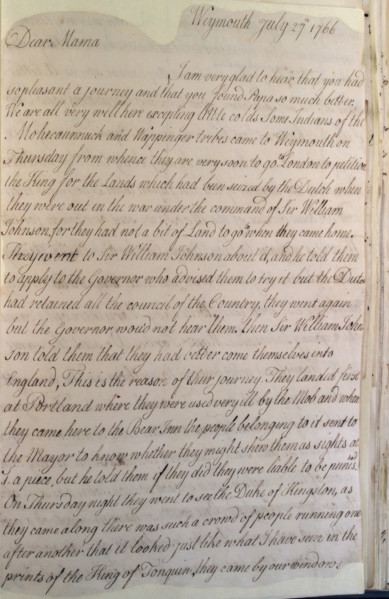 Weymouth July 27th 1766
Dear Mama
I am very glad to hear that you had
so pleasant a journey and that you found Papa so much better.
We are all very well here excepting little colds Some Indians of the
Mohecannuck and Wappinger tribes came to Weymouth on
Thursday from whence they are very soon to go to London to petition
the King for the Lands which had been seized by the Dutch when
they were out in the war under the command of Sir William
Johnson, for they had not a bit of Land to go to when they came home.
They went to Sir William Johnson about it, and he told them
to apply to the Governor who advised them to try it but the Dutch
had retained all the council of the Country, they went again
but the Governor would not hear them. then Sir William John
son told them that they had better come themselves into
England, This is the reason of their journey. They landed first
at Portland where they were used very ill by the Mob and when
they came here to the Bear Inn the people belonging to it sent to
the Mayor to know whether they might shew them as sights at
a piece, but he told them if they did they were liable to be
On Thursday night they went to see the Duke of Kingston, as
they came along there was such a crowd of people running one
after another that it looked just like what I have seen in the
prints of the King of Tonquin, they came by our windows